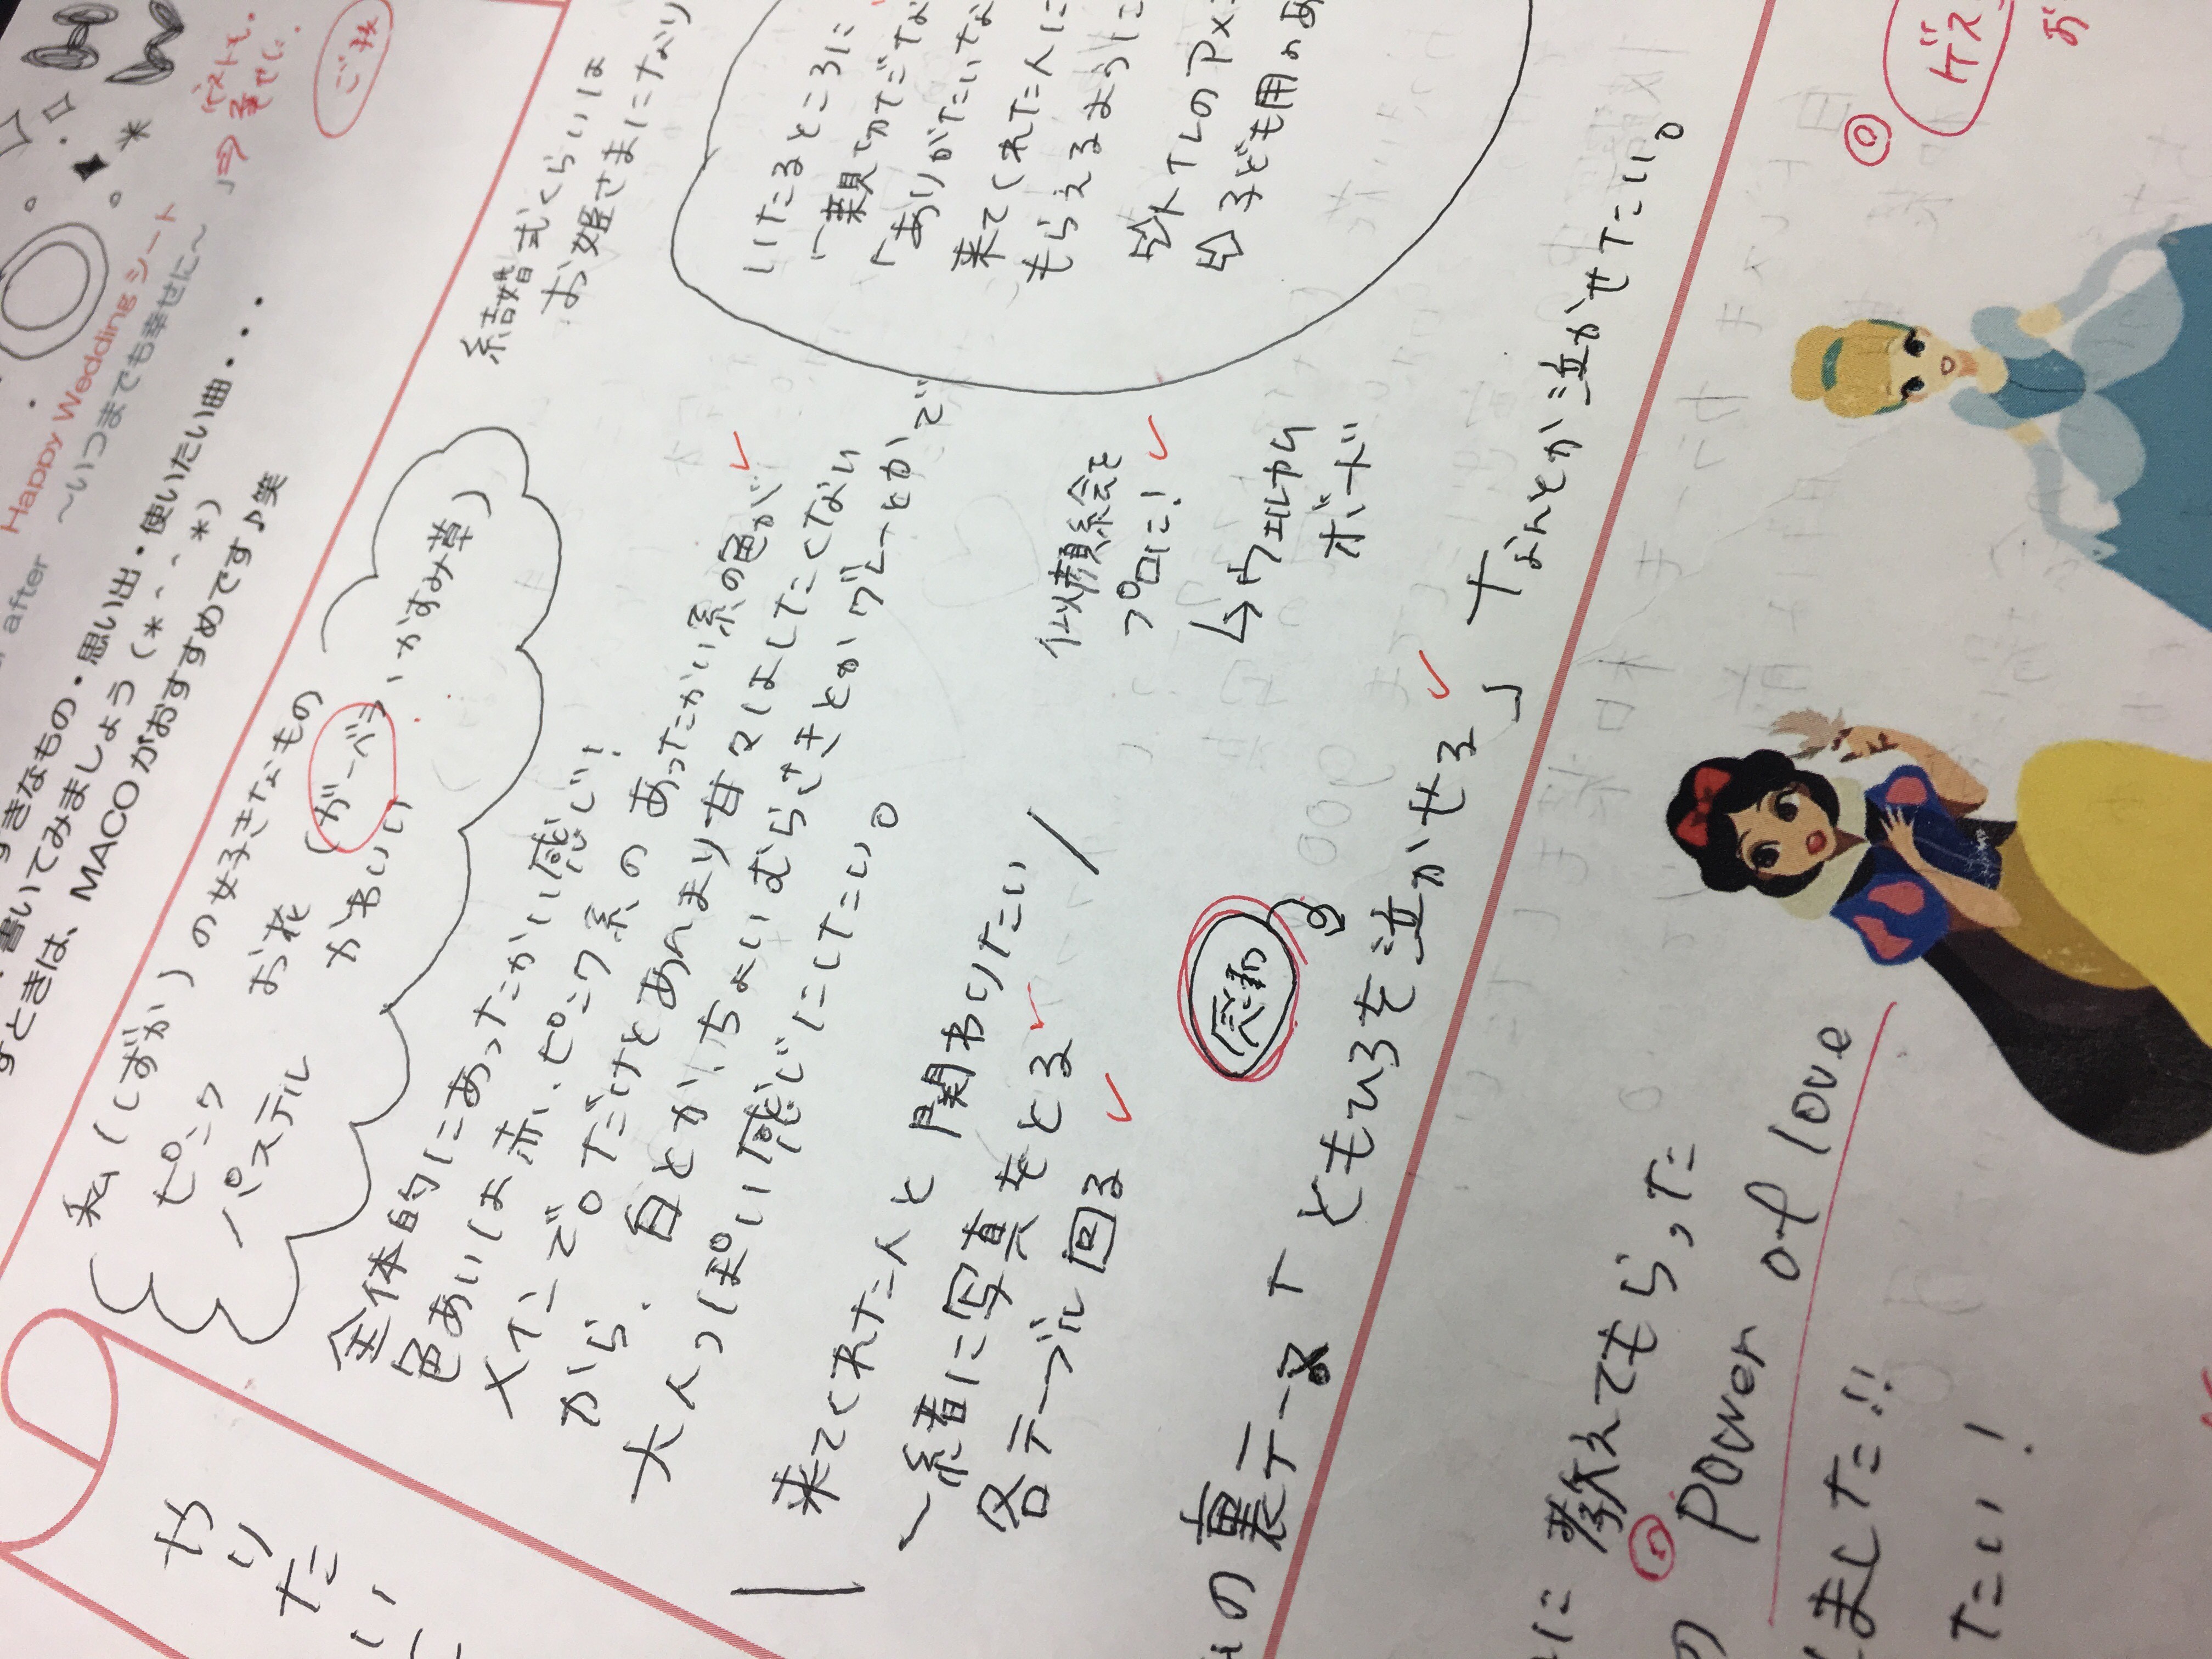 ゲストも
幸せに。
ご祝
Happy Wedding シート
～いつまでも幸せに～
after
すきなもの・思い出・使いたい曲・・・
書いてみましょう（＊＾＾＊）
すときは、MACOがおすすめです♪笑
私（しずか）の好きなもの
ピンク
パステル
お花（ガーベラ、かすみ草）
かわいい
結婚式くらいは
お姫さまになり
全体的にあったかい感じ！
色あいは赤、ピンク系のあったかい系の色が
メインで。だけどあんまり甘々はしたくない
から、白とか、ちょいむらさきとかグレーとかで
大人っぽい感じにしたい。
いたるところに
「親切だな
「ありがたいな
来てくれた人に
もらえるように
⇨トイレのアメ
⇨子ども用のあ
来てくれた人と関わりたい
一緒に写真をとる
各テーブル回る
似顔絵を
プロに！
↳ウェルカム
ボード
感動
の裏テーマ「ともひろを泣かせる」
なんとか泣かせたい。
やりたい
に教えてもらった
の Power of love
しました!!
たい！
ゲス
お